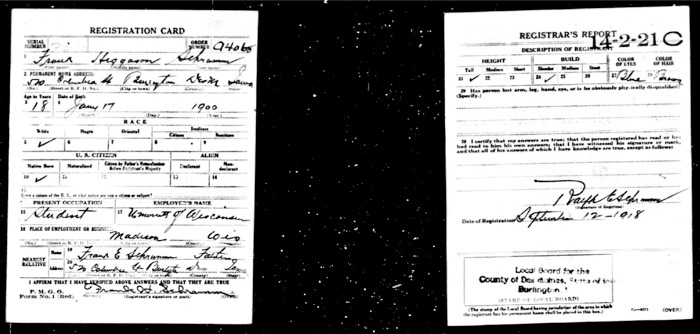 REGISTRATION CARD
SERIAL NUMBER
ORDER NUMBER A 406
1 Frank Higgason Schramm
2 PERMANENT HOME ADDRESS:
520 Columbia St Burlington Des M Iowa
Age in Years
Date of Birth
3 18 4 Jany 17 1900
RACE
White Negro Oriental Indian
Citizen Noncitizen
5 ✓ 6 7 8 9
U. S. CITIZEN ALIEN
Native Born Naturalized Citizen by Father's Naturalization Before Registrant's Majority Declarant Non-declarant
10 ✓ 11 12 13 14
15
If not a citizen of the U. S., of what nation are you a citizen or subject?
PRESENT OCCUPATION EMPLOYER'S NAME
16 Student 17 University of Wisconsin
18 PLACE OF EMPLOYMENT OR BUSINESS:
Madison Wis
NEAREST RELATIVE
Name 19 Frank E Schramm Father
Address 20 520 Columbia St Iowa
I AFFIRM THAT I HAVE VERIFIED ABOVE ANSWERS AND THAT THEY ARE TRUE
P. M. G. O.
Form No. 1 (Red) Frank H. Schramm
(Registrant's signature or mark)
REGISTRAR'S REPORT
14-2-21 C
DESCRIPTION OF REGISTRANT
HEIGHT BUILD COLOR OF EYES COLOR OF HAIR
Tall Medium Short Slender Medium Stout
21 ✓ 22 23 24 ✓ 25 26 27 Blue 28 Brown
29 Has person lost arm, leg, hand, eye, or is he obviously physically disqualified?
(Specify.)
30 I certify that my answers are true; that the person registered has read or has
had read to him his own answers; that I have witnessed his signature or mark,
and that all of his answers of which I have knowledge are true, except as follows:
Ralph E Schramm
(Signature of Registrar)
Date of Registration September 12-1918
Local Board for the
County of Des Moines, State of Iowa
Burlington
(STAMP OF LOCAL BOARD)
(The stamp of the Local Board having jurisdiction of the area in which
the registrant has his permanent home shall be placed in this box.)
(OVER)